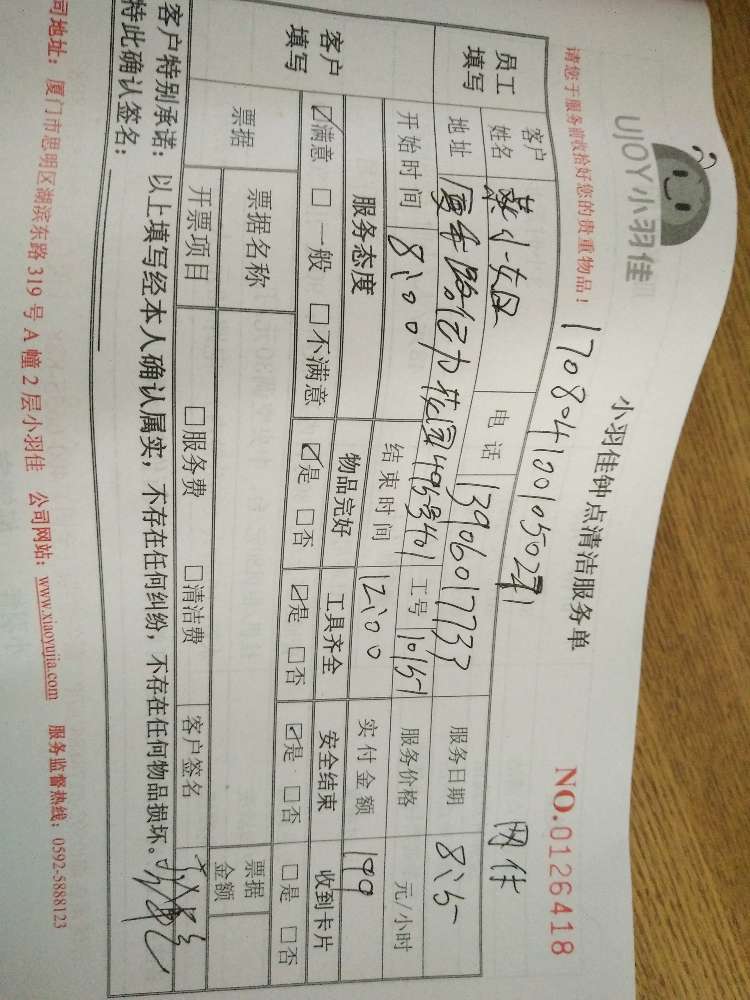 UJOY小羽佳
小羽佳钟点清洁服务单
NO.0126418
请您于服务前收拾好您的贵重物品！
170804100105021
网付
员工填写
客户姓名 蔡小姐 电话 13906017733 服务日期 8:5
地址 厦禾路亿力花园 工号 10151 服务价格 元/小时
开始时间 8:00 结束时间 12:00 实付金额 199
客户填写
服务态度 物品完好 工具齐全 安全结束 收到卡片
☑满意 □一般 □不满意 ☑是 □否 ☑是 □否 ☑是 □否 □是 □否
票据 票据名称 票据金额
开票项目 □服务费 □清洁费 客户签名
客户特别承诺：以上填写经本人确认属实，不存在任何纠纷，不存在任何物品损坏。
特此确认签名：
司地址：厦门市思明区湖滨东路319号A幢2层小羽佳 公司网站：www.xiaoyujia.com 服务监督热线：0592-5888123